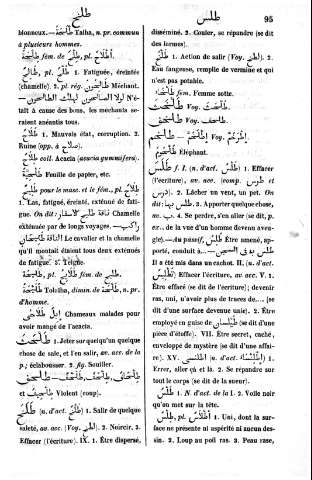 طلح
طلس
95
monneux. — طلحة Talha, n. pr. commun
à plusieurs hommes.
طلح fém. de طلح, pl. أطلاح
طلح, pl. 1. Fatiguée, éreintée
(chamelle). 2. pl. rég. طالحون Méchant.
لولا الصالحون لهلك الطالحون N'é-
tait à cause des bons, les méchants se-
raient anéantis tous.
طلاح 1. Mauvais état, corruption. 2.
Ruine (opp. à صلاح).
طلاح coll. Acacia (acacia gummifera).
طلحية Feuille de papier, etc.
طليح pour le masc. et le fém., pl.
1. Las, fatigué, éreinté, exténué de fati-
gue. On dit: ناقة طليح أسفار Chamelle
exténuée par de longs voyages.
Le cavalier et la chamelle
qu'il montait étaient tous deux exténués
de fatigue. 2. Teigne.
طليحة, pl. fém. de طليح.
طليحة Tolaïha, dimin. de طلحة, n. pr.
d'homme.
إبل طلاحى Chameaux malades pour
avoir mangé de l'acacia.
1. Jeter sur quelqu'un quelque
chose de sale, et l'en salir, av. acc. de la
p.; éclabousser. 2. fig. Souiller.
et طلحيف Violent (coup).
طلخ (n. d'act. طلخ) 1. Salir de quelque
saleté, av. acc. (Voy. لطخ). 2. Noircir. 3.
Effacer (l'écriture). IX. 1. Être dispersé,
disséminé. 2. Couler, se répandre (se dit
des larmes).
طلخ 1. Action de salir (Voy. لطخ). 2.
Eau fangeuse, remplie de vermine et qui
n'est pas potable.
طلخاء fém. Femme sotte.
طلخف Voy. طلحف.
طلخم — اطلخم Voy. اطرخم.
طلخام Éléphant.
طلس f. I. (n. d'act. طلس) 1. Effacer
(l'écriture), av. acc. (comp. طرس et
درس). 2. Lâcher un vent, un pet. On
dit: طلس بها. 3. Apporter quelque chose,
av. ب. 4. Se perdre, s'en aller (se dit, p.
ex., de la vue d'un homme devenu aven-
gle). — Au passif, طلس Être amené, ap-
porté, conduit à... — طلس به في السجن
Il a été mis dans un cachot. II. (n. d'act.
تطليس) Effacer l'écriture, av. acc. V. 1.
Être effacé (se dit de l'écriture); devenir
ras, uni, n'avoir plus de traces de... (se
dit d'une surface devenue unie). 2. Être
employé en guise de طيلسان (se dit d'une
pièce d'étoffe). VII. Être secret, caché,
enveloppé de mystère (se dit d'une affai-
re). XV. اطلنسى (n. d'act. اطلنساء) 1.
Errer, aller çà et là. 2. Se répandre sur
tout le corps (se dit de la sueur).
طلس 1. N. d'act. de la I. 2. Voile noir
qu'on met sur la tête.
طلس, pl. أطلاس 1. Uni, dont la sur-
face ne présente ni aspérité ni aucun des-
sin. 2. Loup au poil ras. 3. Peau rase,